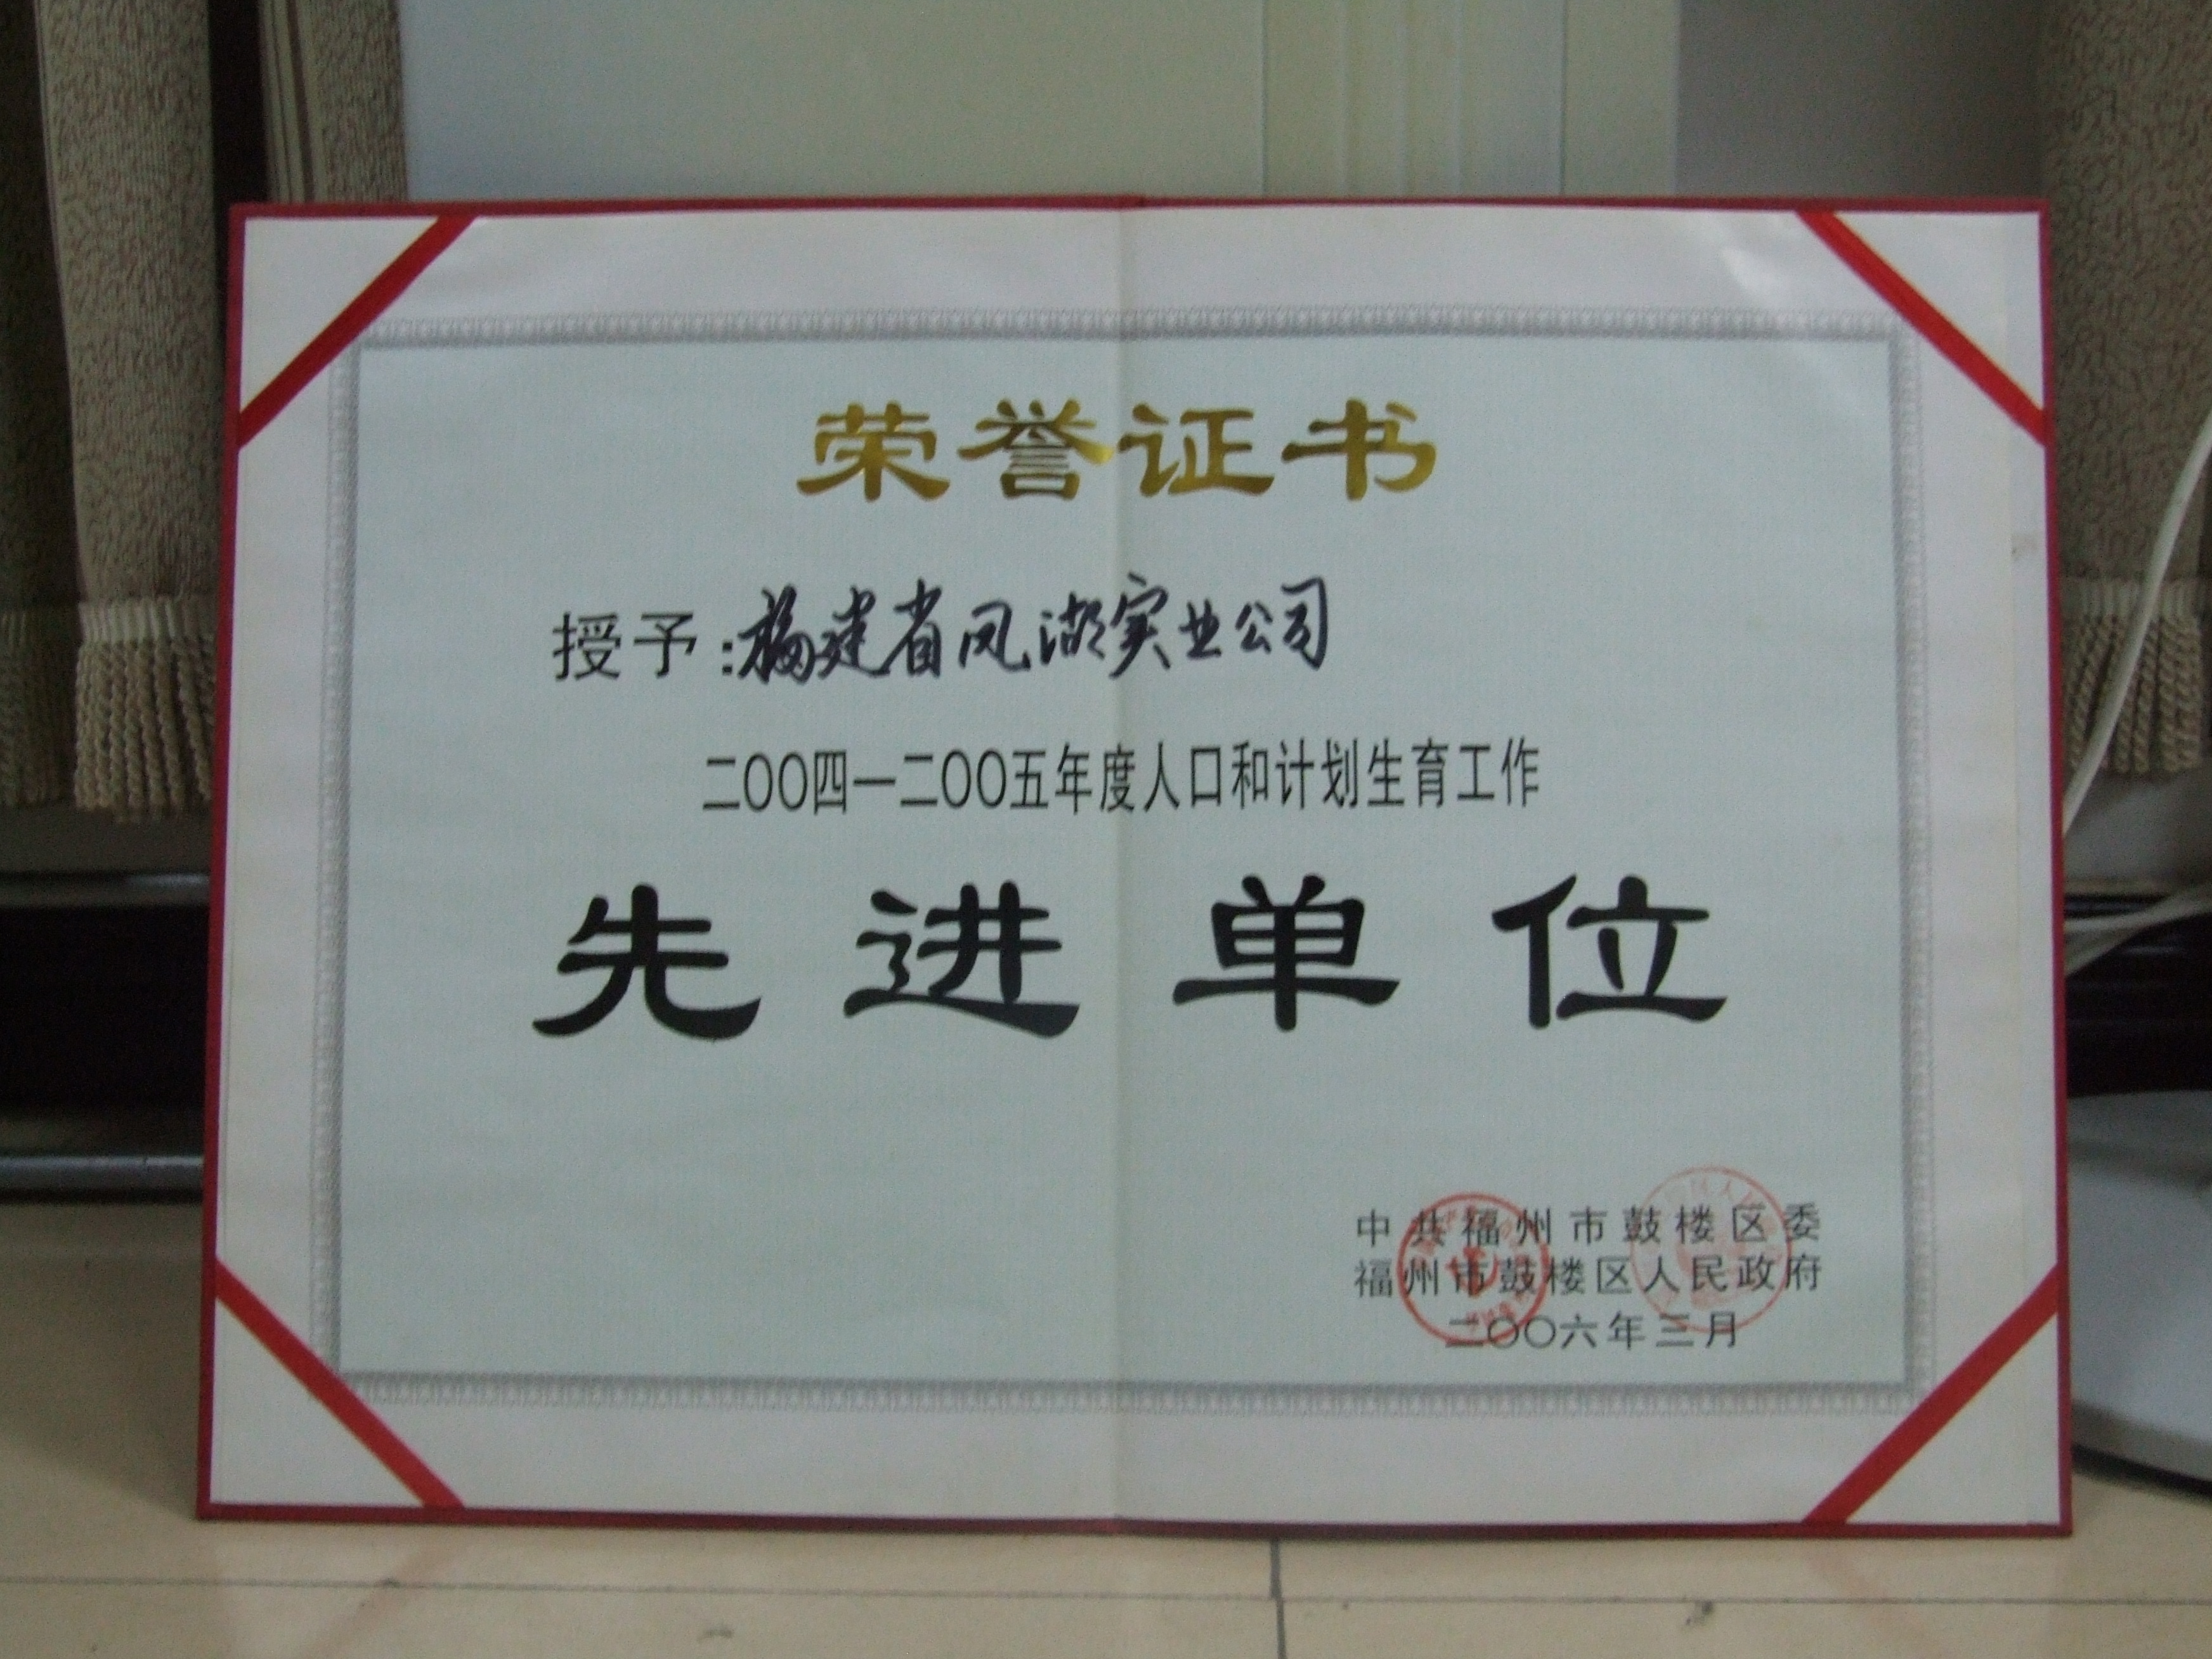 荣誉证书
授予:福建省凤湖实业公司
二〇〇四一二〇〇五年度人口和计划生育工作
先进单位
中共福州市鼓楼区委
福州市鼓楼区人民政府
二〇〇六年三月